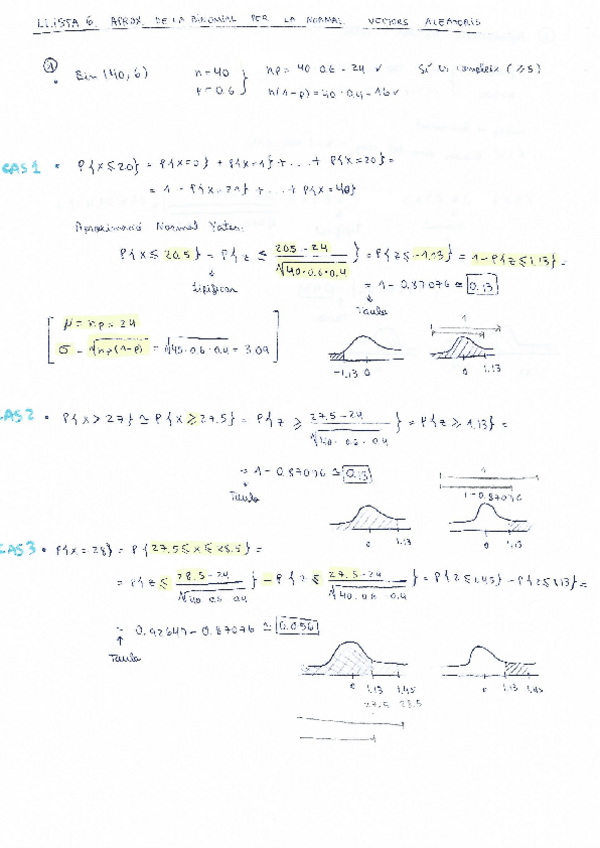 LLISTA 6. APROX. DE LA BINOMIAL PER LA NORMAL. VECTORS ALEATORIS
① Bin (40, 6) n=40 np= 40·0.6=24 ✓ Sí es compleix (≥5)
p=0.6 n(1-p)=40·0.4=16 ✓
CAS 1 • P{X≤20} = P{X=0} + P{X=1} + ... + P{X=20} =
= 1 - P{X=21} + ... + P{X=40}
Aproximació Normal Yates:
P{X≤ 20.5} = P{Z ≤ (20.5-24)/√40·0.6·0.4} = P{Z≤ -1.13} = 1-P{Z≤1.13} =
↓ Tipificar
= 1 - 0.87076 ≅ 0.13
↓ Taula
μ = np = 24
σ = √np(1-p) = √40·0.6·0.4 = 3.09
1
-1.13 0 0 1.13
CAS 2 • P{X>27} ≃ P{X≥27.5} = P{Z ≥ (27.5-24)/√40·0.6·0.4} = P{Z≥1.13} =
= 1-0.87076 ≅ 0.13
↓ Taula
1
1-0.87076
0 1.13 0 1.13
CAS 3 • P{X=28} = P{27.5≤X≤28.5} =
= P{Z≤ (28.5-24)/√40·0.6·0.4} - P{Z≤ (27.5-24)/√40·0.6·0.4} = P{Z≤1.45} - P{Z≤1.13} =
= 0.92647-0.87076 ≅ 0.056
↑ Taula
0 1.13 1.45 0 1.13 1.45
27.5 28.5